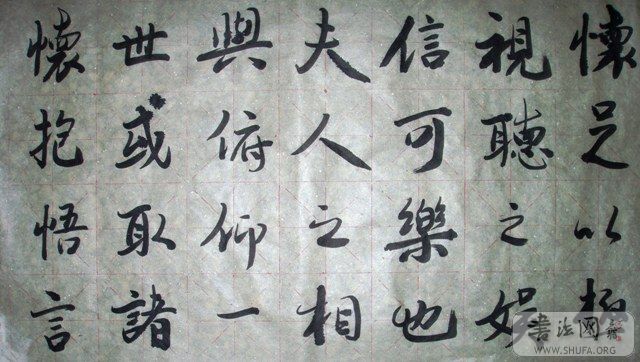 懷足以極
視聽之娛
信可樂也
夫人之相
與俯仰一
世或取諸
懷抱悟言
書法网
WWW.SHUFA.ORG